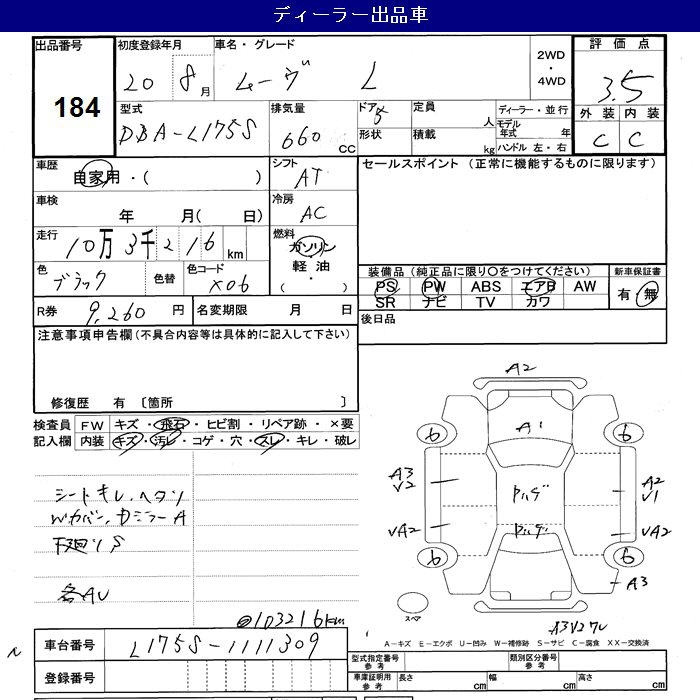 ディーラー出品車
出品番号
184
初度登録年月
20 8月
車名・グレード
ムーヴ L
2WD
・
4WD
評価点
3.5
型式
DBA-L175S
排気量
660 CC
ドア 5
形状
定員 人
積載 kg
ディーラー・並行
モデル年式 年
ハンドル 左・右
外装 内装
C C
車歴
自家用・( )
シフト
AT
セールスポイント (正常に機能するものに限ります)
車検
年 月( 日)
冷房
AC
走行
10万3千216 km
燃料
ガソリン
・
軽油
・
( )
色
ブラック
色替
色コード
X06
装備品 (純正品に限り○をつけてください)
新車保証書
PS PW ABS エアB AW
SR ナビ TV カワ
有・無
R券 9,260 円
名変期限 月 日
後日品
注意事項申告欄(不具合内容等は具体的に記入して下さい)
修復歴 有 〔箇所 〕
検査員
記入欄
FW キズ・飛石・ヒビ割・リペア跡・×要
内装 キズ・汚レ・コゲ・穴・スレ・キレ・破レ
A2
A1
6 6
A3
V2
A2
V1
VA2
VA2
6 6
A3
スペア
シートキレ、ヘタリ
Wカバー、
A
下廻りS
各AU
103216km
車台番号
L175S-1111309
登録番号
A－キズ E－エクボ U－凹み W－補修跡 S－サビ C－腐食 XX－交換済
型式指定番号
参考
類別区分番号
参考
車庫証明用
参考
長さ cm
幅 cm
高さ cm